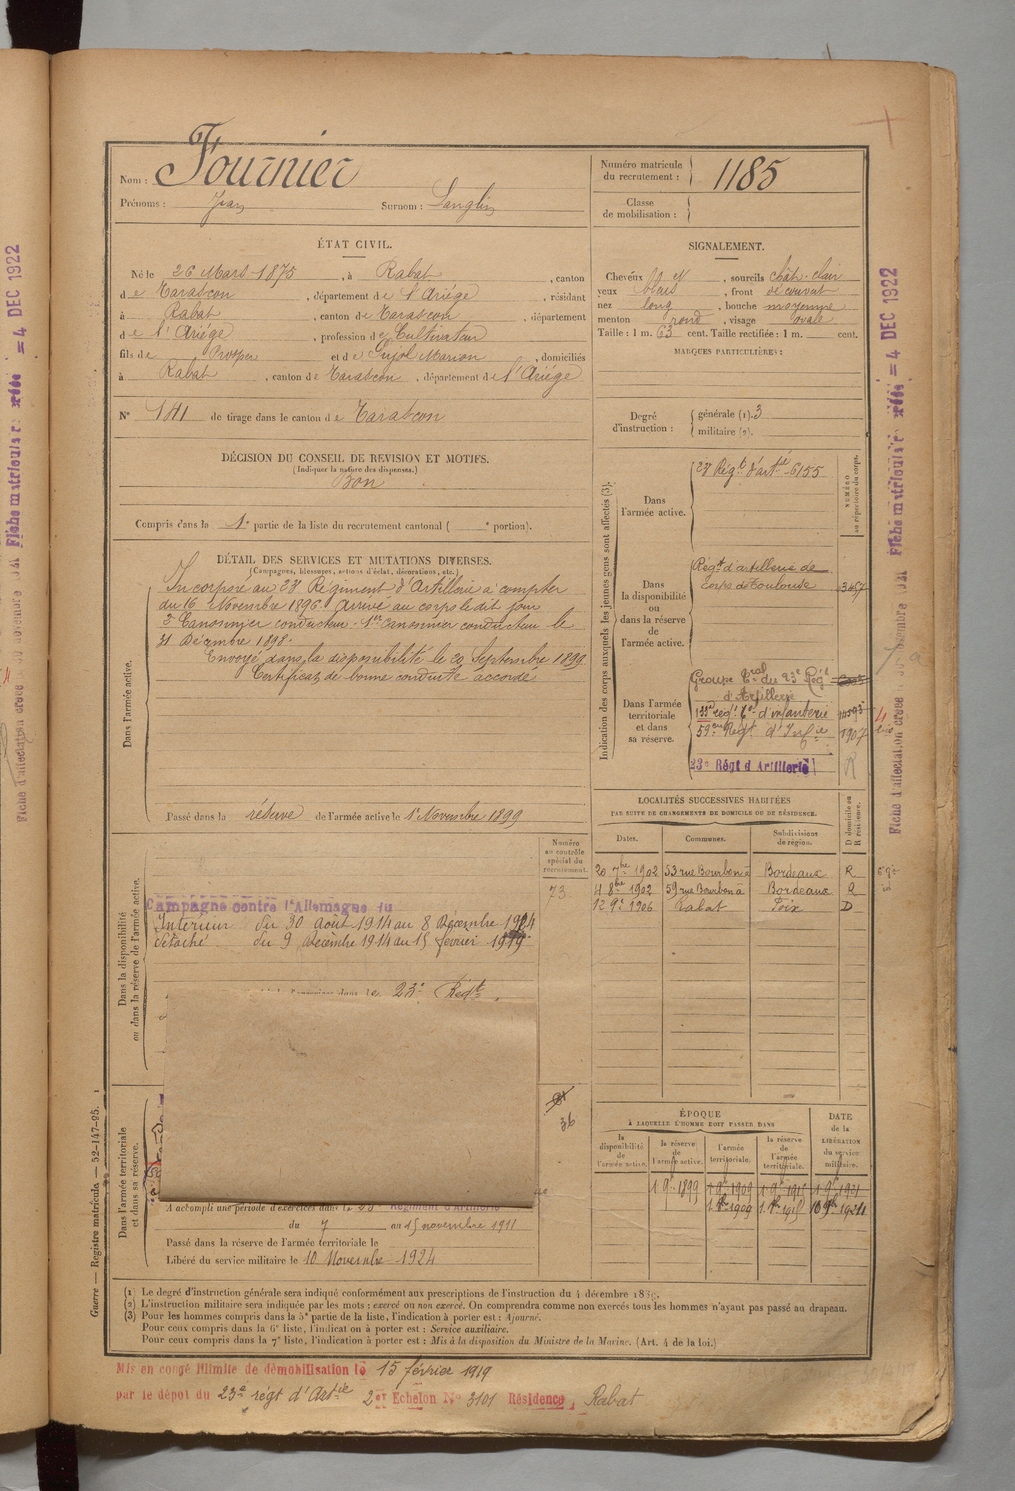 Nom : Fournier
Prénoms : Jean Surnom : Langlin
Numéro matricule du recrutement : 1185
Classe de mobilisation :
ÉTAT CIVIL.
Né le 26 Mars 1875, à Rabat, canton
de Tarascon, département de l'Ariége, résidant
à Rabat, canton de Tarascon, département
de l'Ariége, profession de Cultivateur
fils de Prosper et de Pujol Marion, domiciliés
à Rabat, canton de Tarascon, département de l'Ariége
N° 141 de tirage dans le canton de Tarascon
DÉCISION DU CONSEIL DE REVISION ET MOTIFS.
(Indiquer la nature des dispenses.)
Bon
Compris dans la 1e partie de la liste du recrutement cantonal ( e portion).
SIGNALEMENT.
Cheveux , sourcils chât-clair
yeux bleus, front découvert
nez long, bouche moyenne
menton rond, visage ovale
Taille : 1 m. 63 cent. Taille rectifiée : 1 m. cent.
MARQUES PARTICULIÈRES :
Degré d'instruction : générale (1). 3
militaire (2).
DÉTAIL DES SERVICES ET MUTATIONS DIVERSES.
(Campagnes, blessures, actions d'éclat, décorations, etc.)
Dans l'armée active.
Incorporé au 23e Régiment d'Artillerie à compter
du 16 Novembre 1896. Arrivé au corps le dit jour
2e Canonnier conducteur. 1er Canonnier conducteur le
31 Décembre 1898.
Envoyé dans la disponibilité le 20 Septembre 1899
Certificat de bonne conduite accordé
Passé dans la réserve de l'armée active le 1er Novembre 1899
Indication des corps auxquels les jeunes gens sont affectés (3).
NUMÉRO au répertoire du corps.
Dans l'armée active.
23e Régt d'artie 6155
Dans la disponibilité ou dans la réserve de l'armée active.
Régt d'artillerie de
corps de Toulouse
Dans l'armée territoriale et dans sa réserve.
Groupe Tral du 23e Régt
d'Artillerie
133e régt Tal d'infanterie
59e Régt d'Infie 1907
23e Régt d'Artillerie
LOCALITÉS SUCCESSIVES HABITÉES
PAR SUITE DE CHANGEMENTS DE DOMICILE OU DE RÉSIDENCE.
Dates. Communes. Subdivisions de région. D domicile ou R résidence.
20 7bre 1902 53 rue Bourbon à Bordeaux R
4 8bre 1902 59 rue Bourbon à Bordeaux R
12 9e 1906 Rabat Foix D
Numéro au contrôle spécial du recrutement.
73
Dans la disponibilité ou dans la réserve de l'armée active.
Campagne contre l'Allemagne du
Intérieur du 30 août 1914 au 8 Décembre 1914
détaché du 9 Décembre 1914 au 15 février 1919
23e Régt
36
Dans l'armée territoriale et dans sa réserve.
A accompli une période d'exercices dans le 23e Régiment d'Artillerie
du 7 au 15 novembre 1911
Passé dans la réserve de l'armée territoriale le
Libéré du service militaire le 10 Novembre 1924
ÉPOQUE
À LAQUELLE L'HOMME DOIT PASSER DANS
DATE de la LIBÉRATION du service militaire.
la disponibilité de l'armée active. la réserve de l'armée active. l'armée territoriale. la réserve de l'armée territoriale.
1 9e 1899 1 9e 1909 1 9e 1915 1 9e 1921
1 9e 1909 1 9e 1915 10 9e 1924
(1) Le degré d'instruction générale sera indiqué conformément aux prescriptions de l'instruction du 4 décembre 1889.
(2) L'instruction militaire sera indiquée par les mots : exercé ou non exercé. On comprendra comme non exercés tous les hommes n'ayant pas passé au drapeau.
(3) Pour les hommes compris dans la 5e partie de la liste, l'indication à porter est : Ajourné.
Pour ceux compris dans la 6e liste, l'indication à porter est : Service auxiliaire.
Pour ceux compris dans la 7e liste, l'indication à porter est : Mis à la disposition du Ministre de la Marine. (Art. 4 de la loi.)
Guerre — Registre matricule. — 52-147-95.
Mis en congé illimité de démobilisation le 15 février 1919
par le dépôt du 23e régt d'Artie 2er Echelon N° 3101 Résidence, Rabat
Fiche matriculaire créée = 4 DEC 1922
Fiche matriculaire créée = 4 DEC 1922